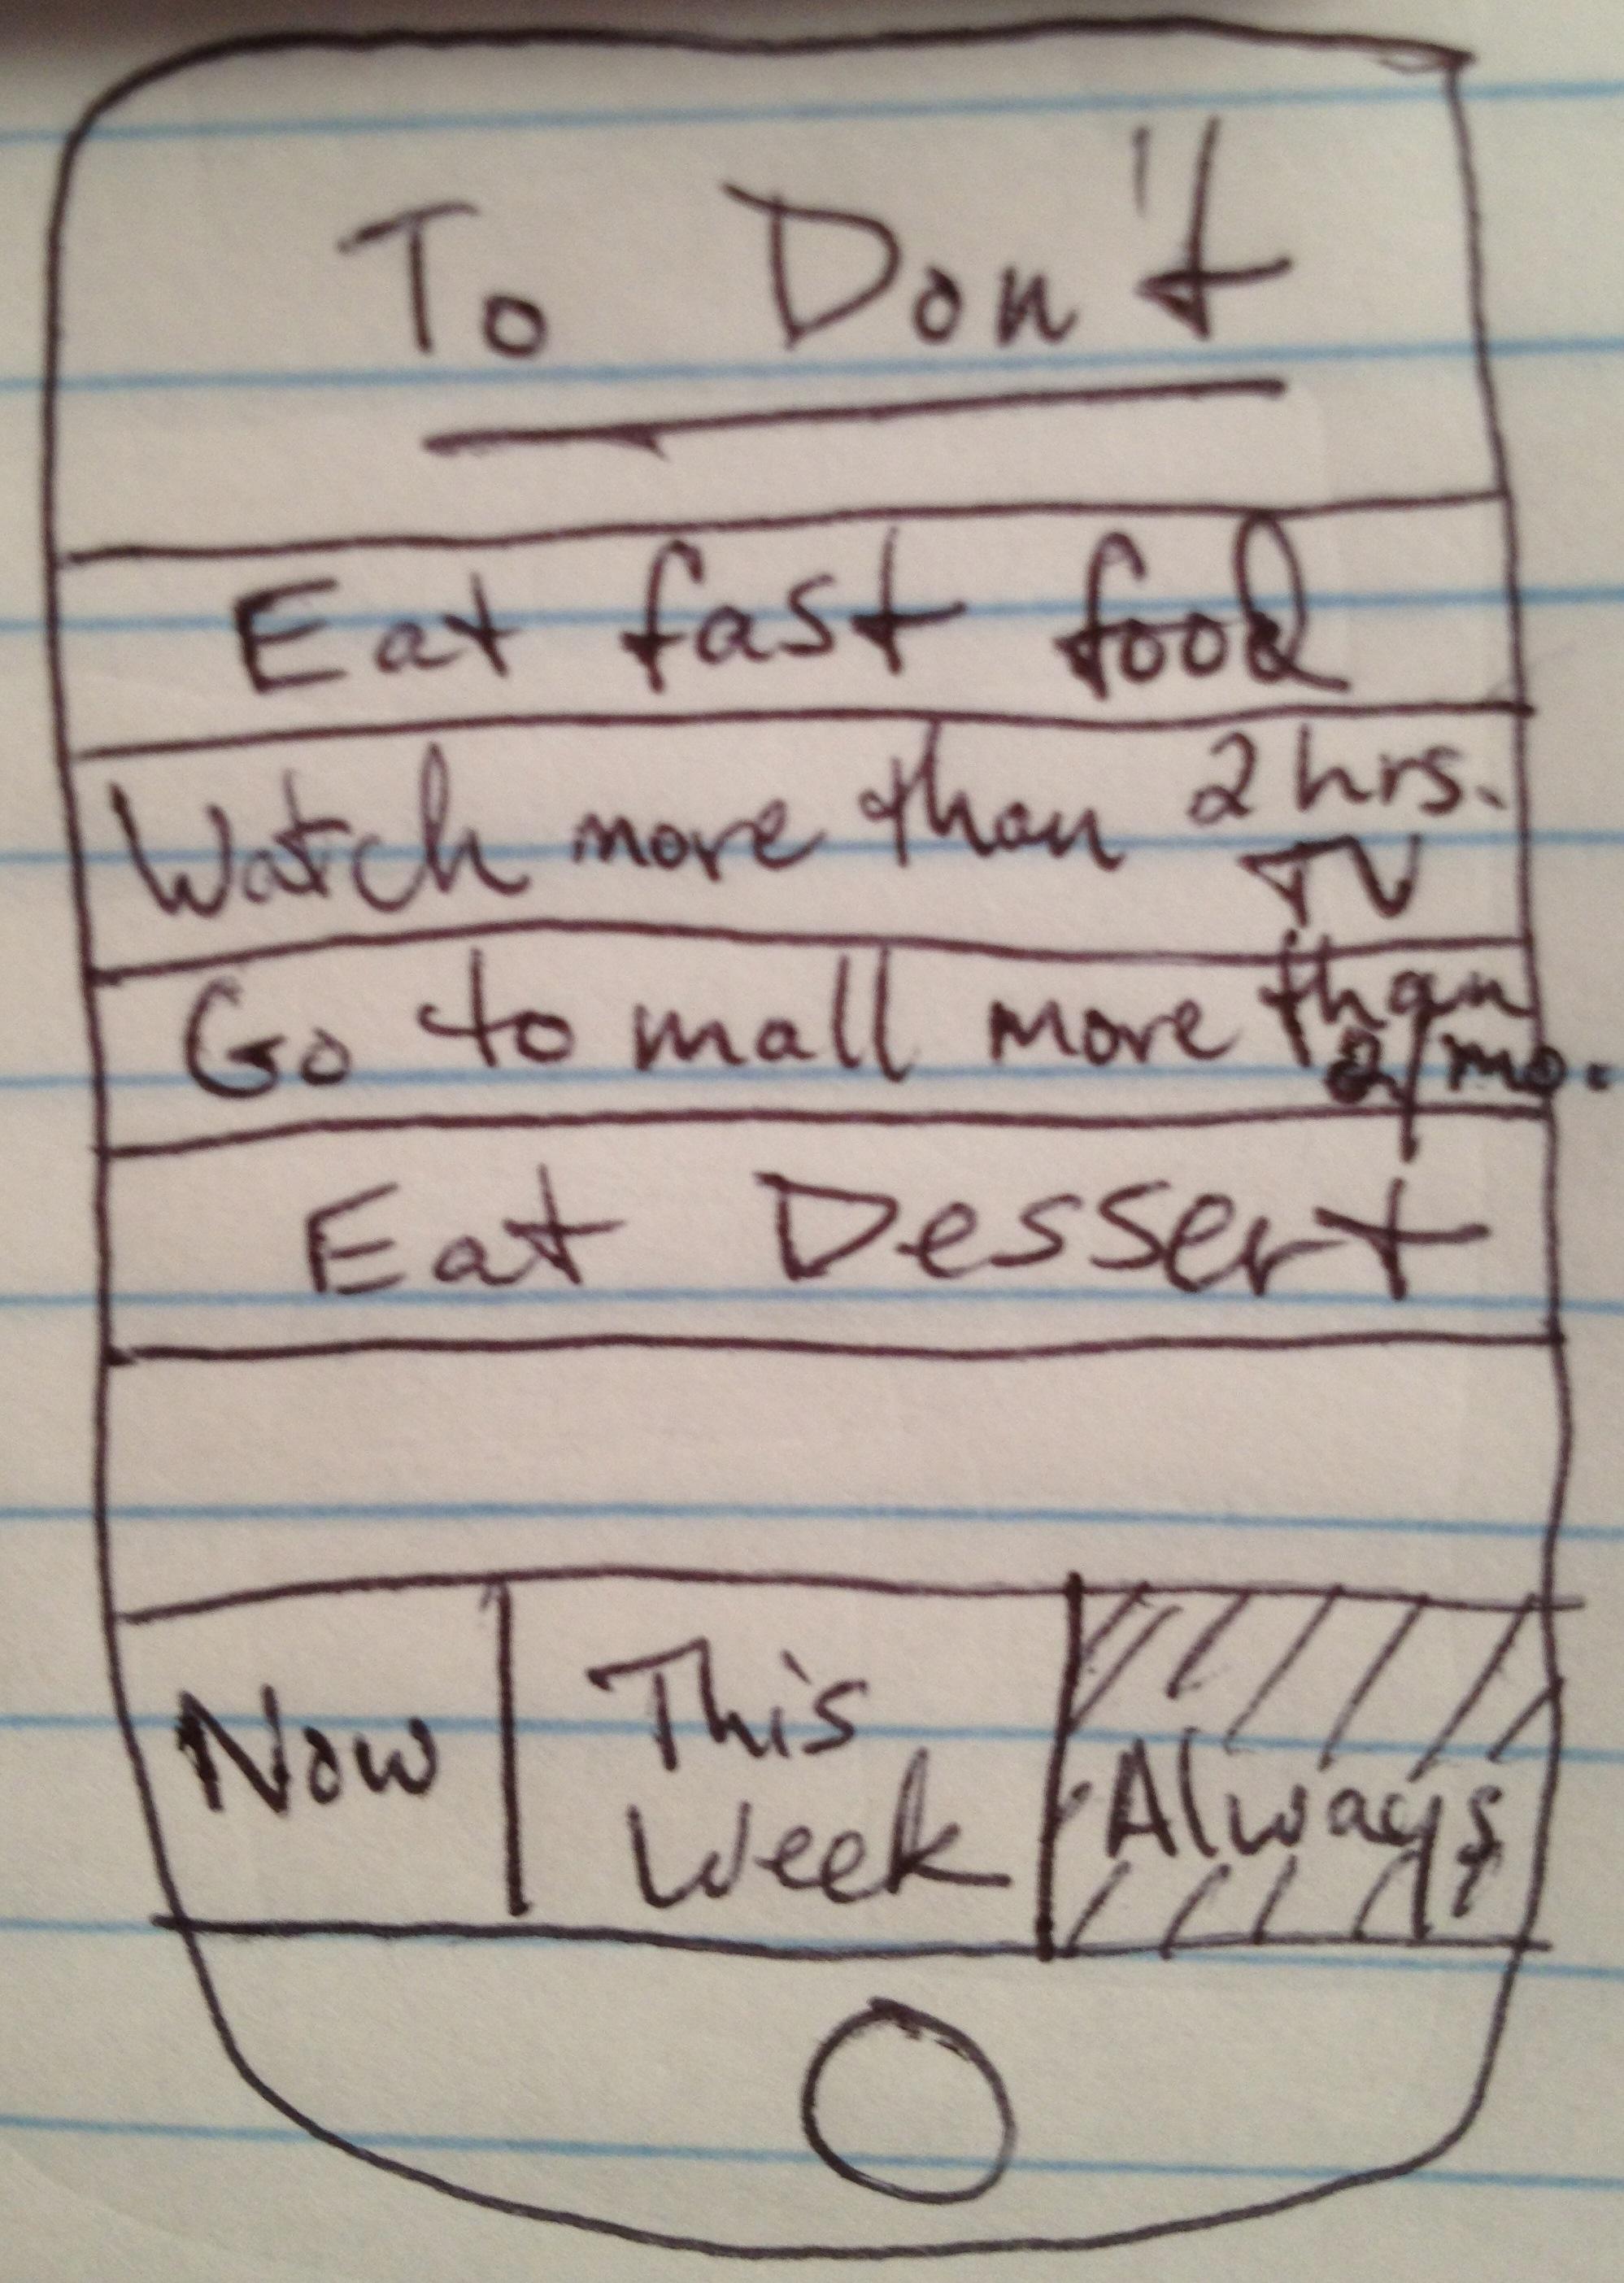 To Don't
Eat fast food
Watch more than 2 hrs.
TV
Go to mall more than
2/mo.
Eat Dessert
Now
This
Week
Always